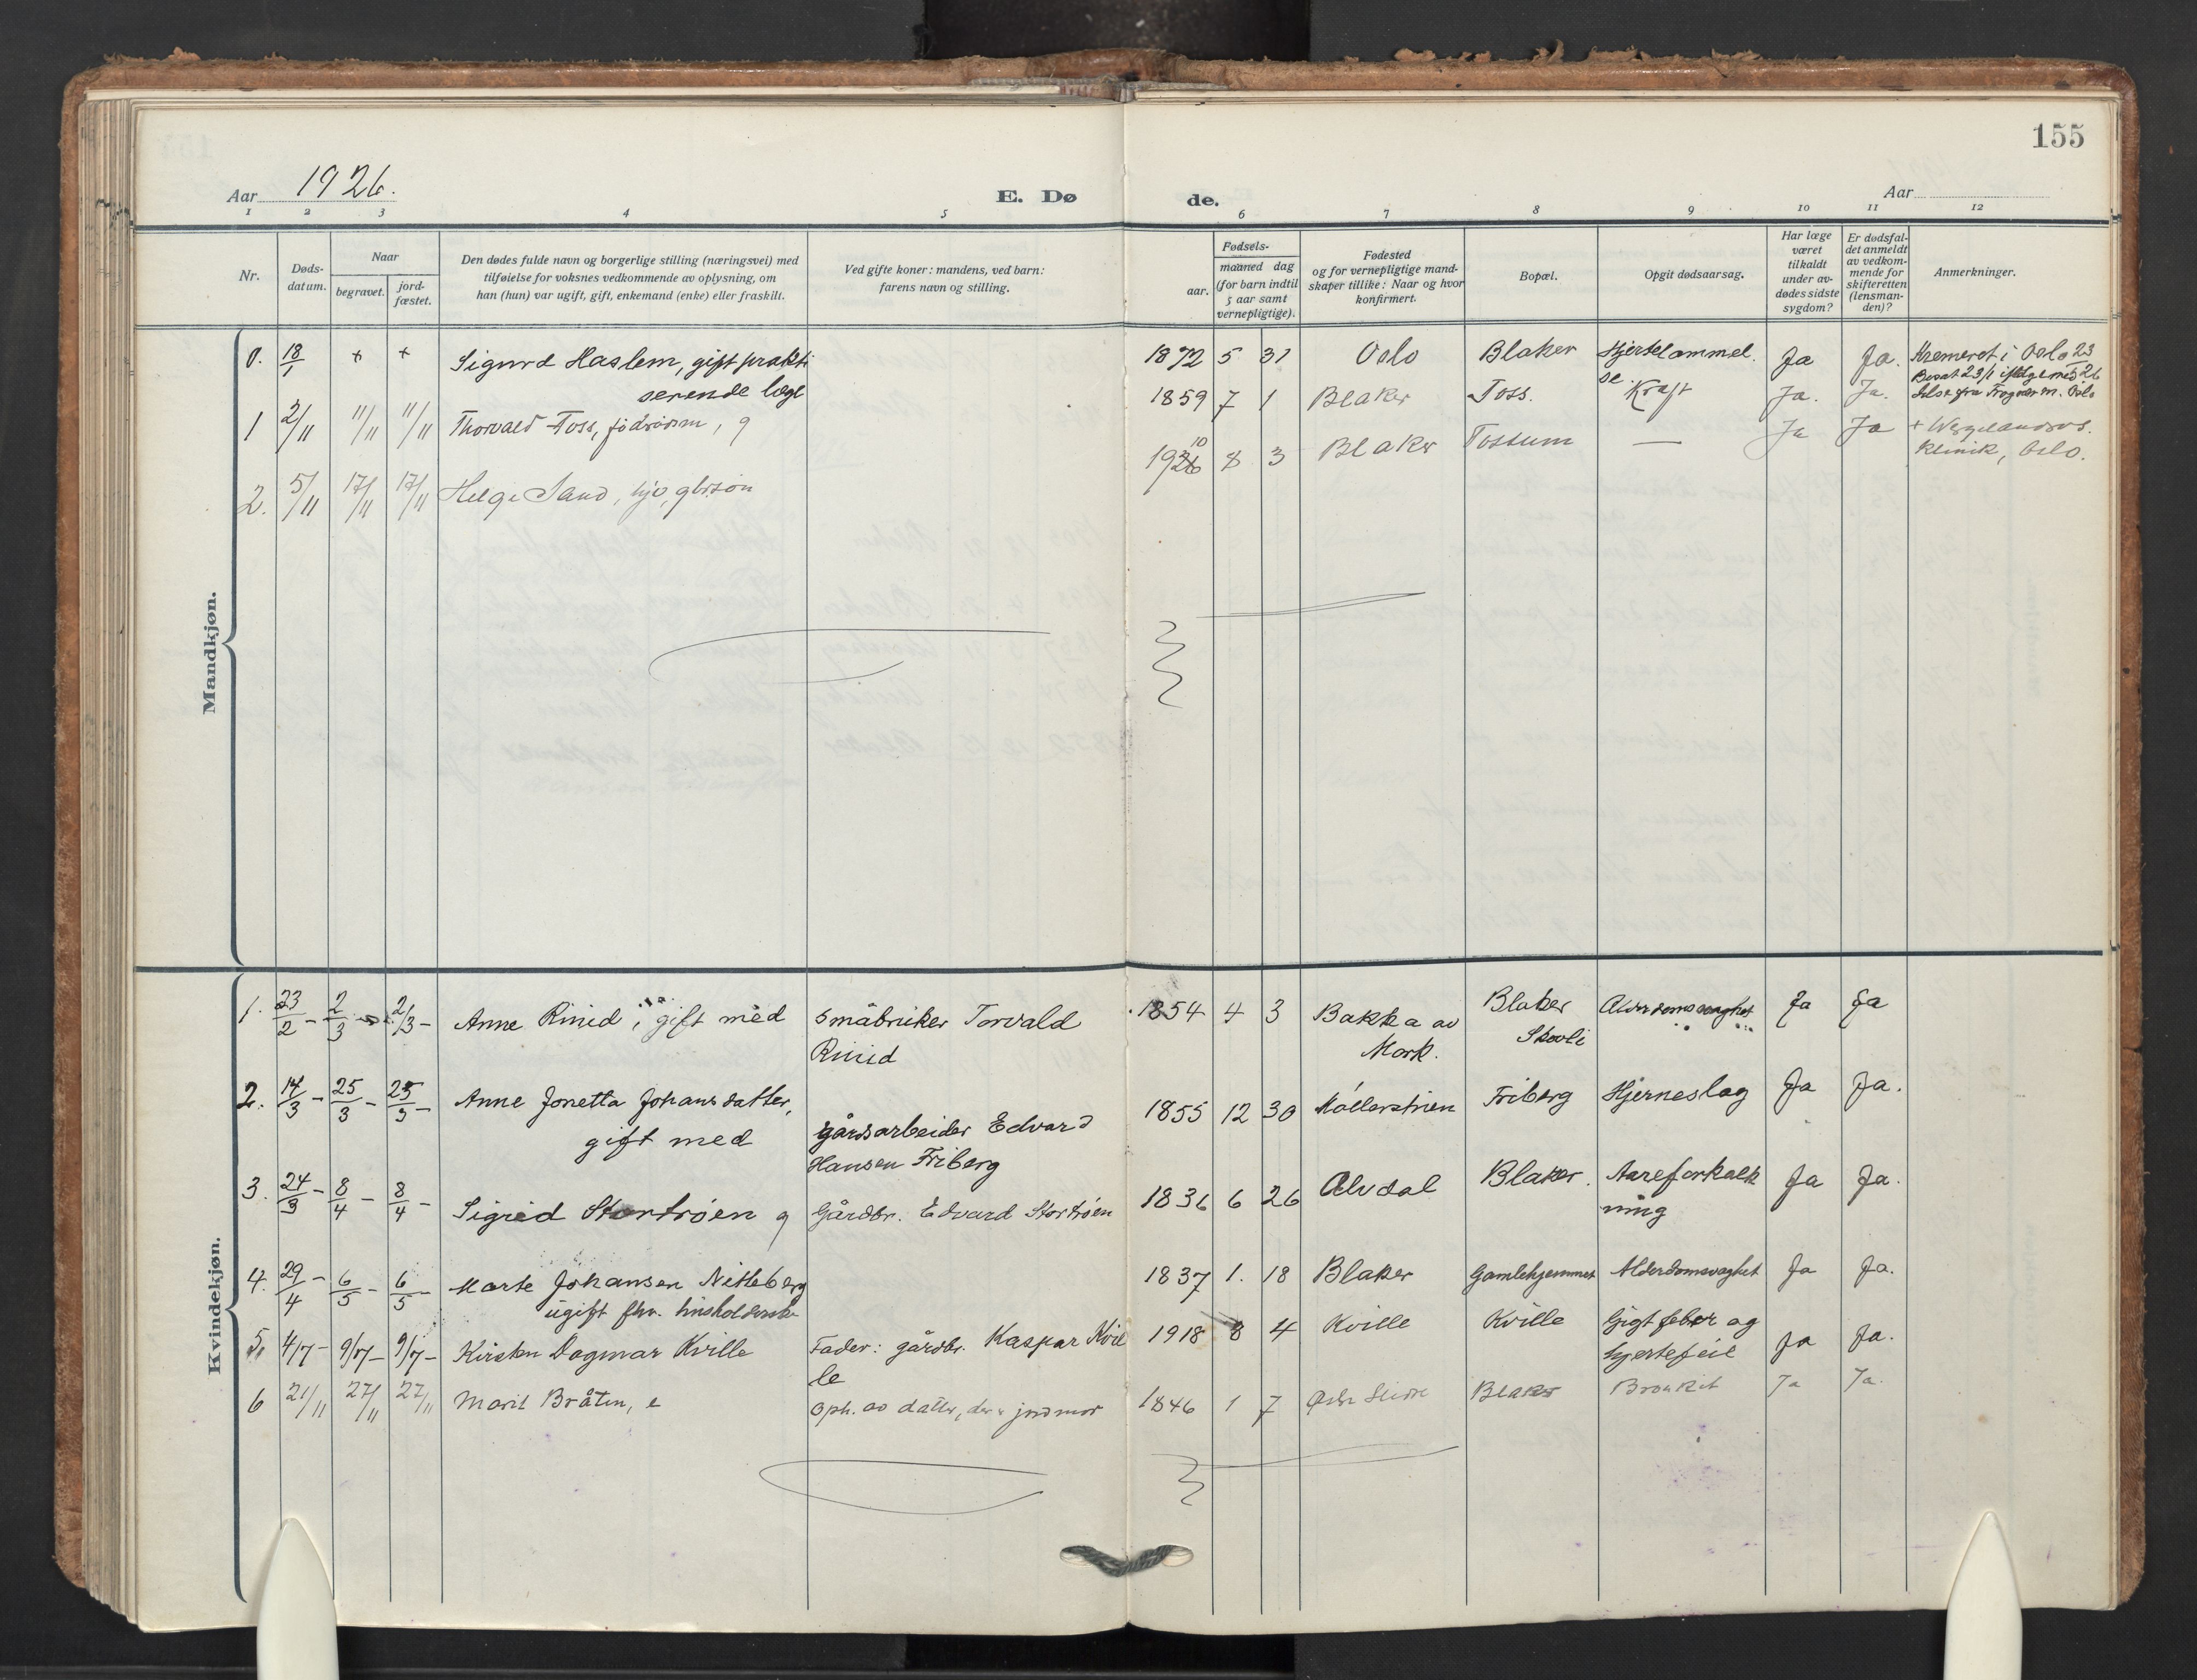 155
Aar 1926.
E. Dø
de.
Aar
1 2 3 4 5 6 7 8 9 10 11 12
Nr.
Døds-
datum.
Naar
begravet.
jord-
fæstet.
Den dødes fulde navn og borgerlige stilling (næringsvei) med
tilføielse for voksnes vedkommende av oplysning, om
han (hun) var ugift, gift, enkemand (enke) eller fraskilt.
Ved gifte koner: mandens, ved barn:
farens navn og stilling.
Fødsels-
aar.
maaned dag
(for barn indtil
5 aar samt
vernepligtige).
Fødested
og for vernepligtige mand-
skaper tillike: Naar og hvor
konfirmert.
Bopæl.
Opgit dødsaarsag.
Har læge
været
tilkaldt
under av-
dødes sidste
sygdom?
Er dødsfal-
det anmeldt
av vedkom-
mende for
skifteretten
(lensman-
den)?
Anmerkninger.
Mandkjøn.
0. 18/1 + + Sigurd Haslem, gift prakti
serende læge
1872 5 31 Oslo Blaker Hjertelammel.
se.
Ja Ja. Kremeret i Oslo 23
Besat 23/1 ifølge med 26
delse fra Frogner m. Oslo
1 2/11 11/11 11/11 Thorvald Foss, fødrådsm, g
1859 7 1 Blaker Foss. Kræft Ja. Ja.
2. 5/11 17/11 17/11 Helge Sand, hjv, gbrsøn
1926 10 8 3 Blaker Fossum — Ja Ja + Wergelandsvs.
klinik, Oslo.
Kvindekjøn.
1. 23/2 - 2/3 - 2/3 - Anne Rinid, gift med småbruker Torvald
Rinid
1854 4 3 Bakka av
Mork.
Blaker
Skovli
Alderdomsvaghet Ja Ja
2. 14/3 - 25/3 - 25/3 - Anne Jonetta Johansdatter,
gift med
gårdsarbeider Edvard
Hansen Friberg
1855 12 30 Møllerstuen Friberg Hjerneslag Ja Ja.
3. 24/3 - 8/4 - 8/4 - Sigrid Stortrøen g Gårdbr. Edvard Stortrøen
1836 6 26 Alvdal Blaker. Aareforkalk
ning
Ja Ja.
4. 29/4 - 6/5 - 6/5 - Marte Johansen Nitteberg
ugift fhv. husholderske
1837 1. 18 Blaker Gamlehjemmet Alderdomsvaghet Ja Ja.
5. 4/7 - 9/7 - 9/7 - Kirsten Dagmar Kville Fader: gårdbr. Kaspar Kvil
le
1918 8 4 Kville Kville Gigtfeber og
hjertefeil
Ja Ja.
6 21/11 27/11 27/11 Marit Bråten, e Oph. av datter, der e jordmor
1846 1 7 Slidre Blaker Bronkit Ja Ja.